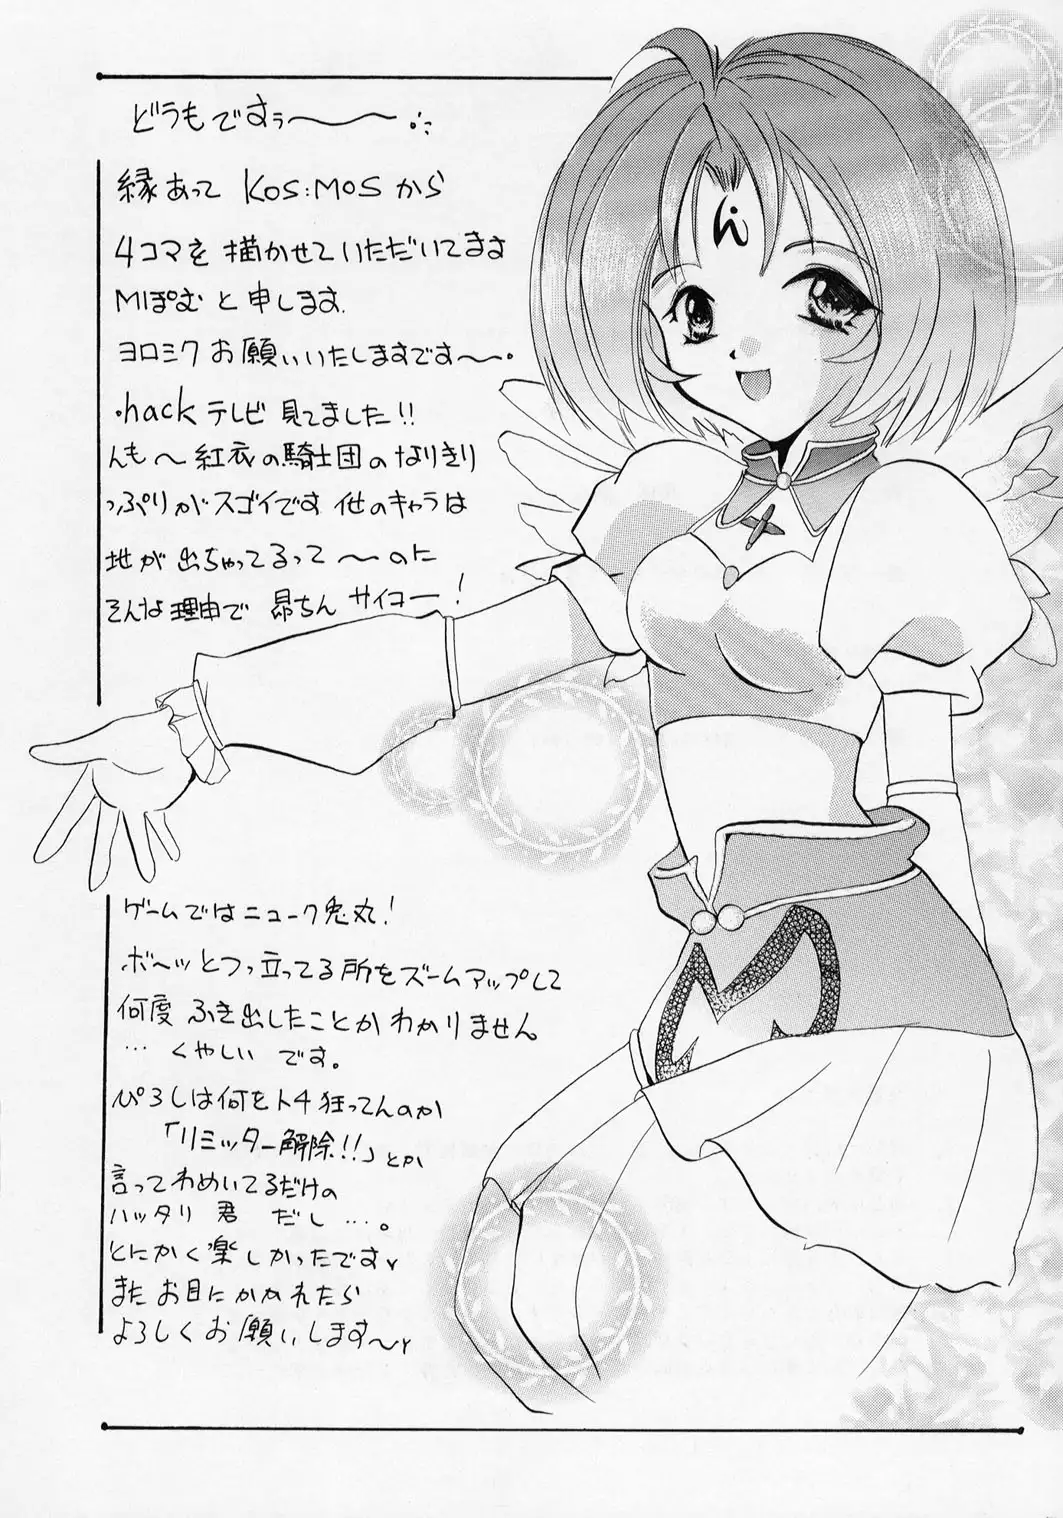 どうもですぅ〜〜
縁あって KOS:MOSから
4コマを描かせていただいてます
MIぽむと申します.
ヨロシクお願いいたしますです〜.
.hackテレビ見てました!!
んも〜紅衣の騎士団のなりきり
っぷりがスゴイです他のキャラは
地が出ちゃってるって〜のに
そんな理由で 昴ちん サイコー!
ん
ゲームではニューク兎丸!
ボ〜ッとつっ立ってる所をズームアップして
何度ふき出したことかわかりません
…くやしいです。
ぴろしは何をトチ狂ってんのか
「リミッター解除!!」とか
言ってわめいてるだけの
ハッタリ君だし…。
とにかく楽しかったです
またお目にかかれたら
よろしくお願いします〜